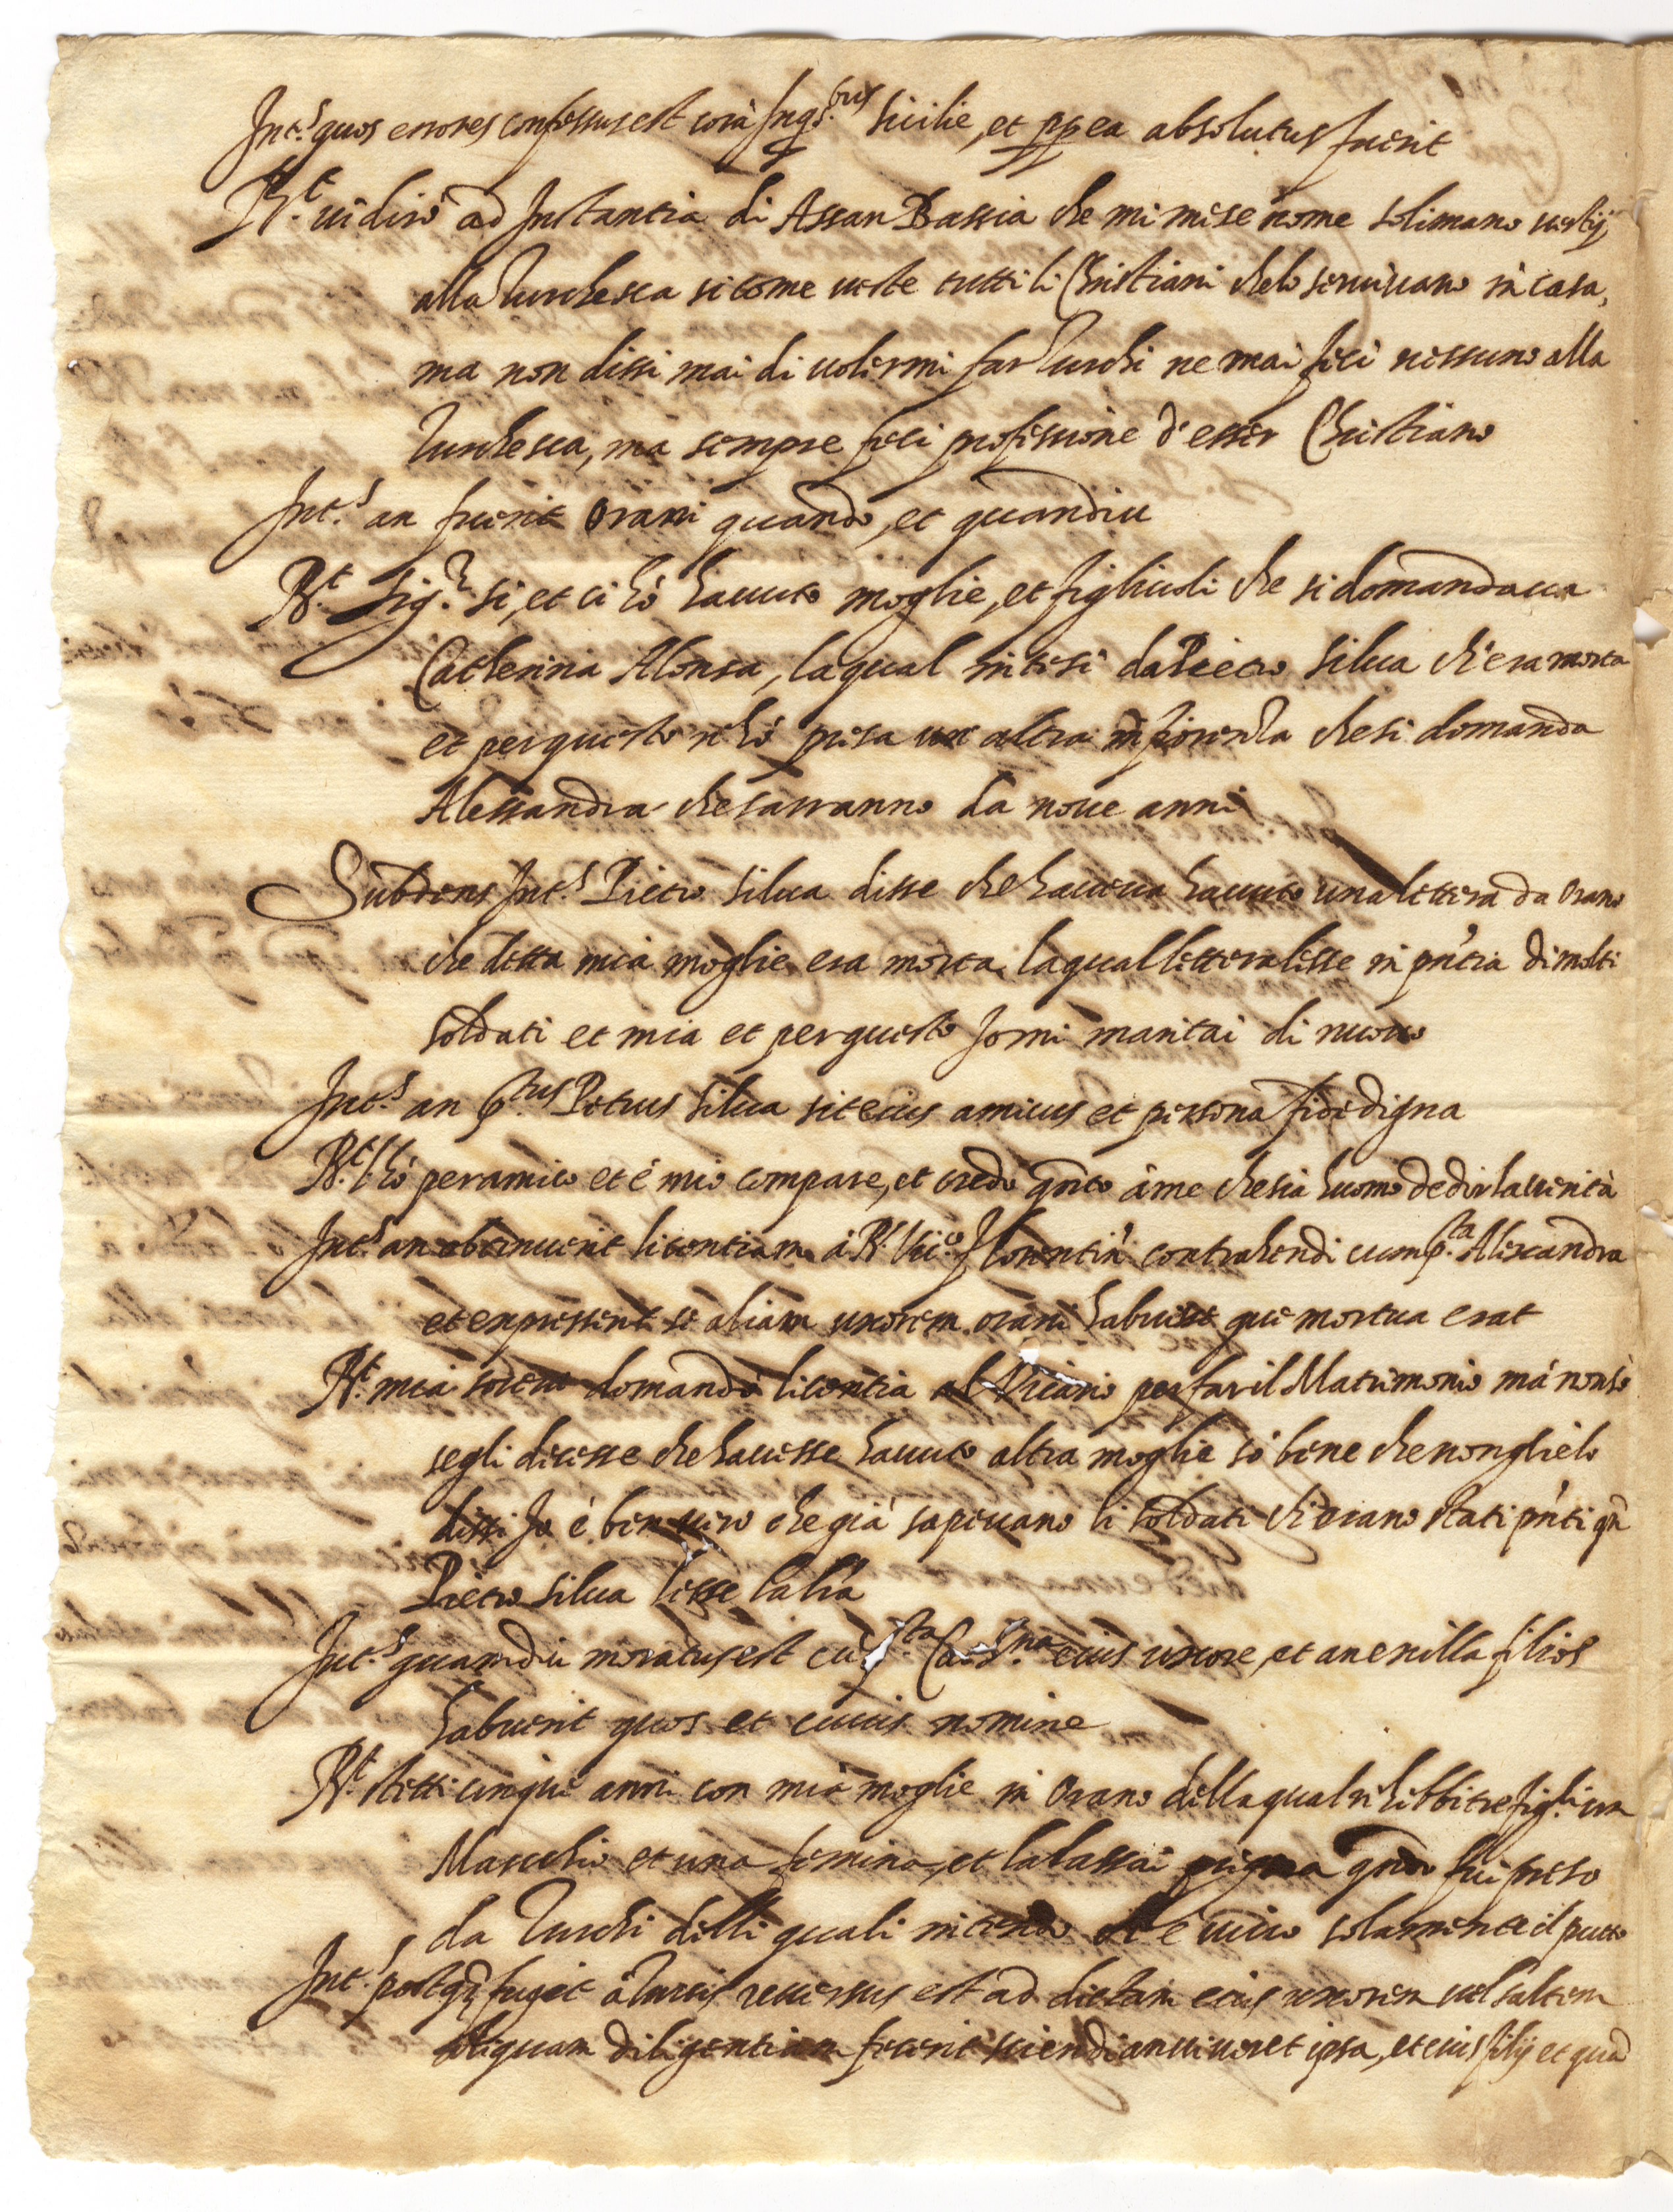 Int.s quos errores confessus est corã Inq.ribus Sicilie, et pp ea absolutus fuerit
R.t vi dirò ad Instantia di Assan Bassia che mi mise nome solimano vestij
alla Turchesca si come veste tutti li Christiani che lo servivano in casa,
ma non dissi mai di volermi far Turchi ne mai feci nissuno alla
Turchesca, ma sempre feci professione d'esser Christiano
Int.s an fuerit Orani quando, et quandiu
R.t Sig.r si, et ci hò havuto moglie, et figliuoli che si domandava
Catherina Alonsa, la qual intesi da Pietro Silva ch'era morta
et per questo n'hò presa un altra in fiorenza che si domanda
Alessandra che sarranno da nove anni
Subdens Int.s Pietro Silva disse che haveva havuto una lettera da Orano
che detta mia moglie era morta, la qual lettera lisse in pñtia di molti
soldati et mia et per questo Io mi maritai di nuovo
Int.s an p.tus Petrus Silva sit eius amicus et persona fide digna
R.t l'hò per amico et è mio compare, et credo qnto à me che sia huomo de dir la verità
Int.s an obtinuerit licentiam à R. Vic.o florentin' contrahendi cum p.ta Alexandra
et expresserit se aliam uxorem orani habuisse que mortua erat
R.t mia socera domandò licentia al Vicario per far il Matrimonio mà non sò
se gli dicesse che havesse havuto altra moglie sò bene che non glielo
dissi Io è ben vero che già sapevano li soldati ch'erano stati pñti qñ
Pietro Silva lesse la lrã
Int.s quamdiu moratus est cũ p.ta Cath.na eius uxore, et an ex illa filios
habuerit quos et cuius nomine
R.t stetti cinque anni con mia moglie in Orano della qual n'hebbi tre figli un
Maschio et una femina, et la lassai qndo fui preso
da Turchi delli quali intendo che è vivo solamente il putto
Int.s postq̃ fugit à Turcis reversus est ad dictam eius uxorem vel saltem
aliquam diligentiam fecerit sciendi an viveret ipsa, et eius filij et quid